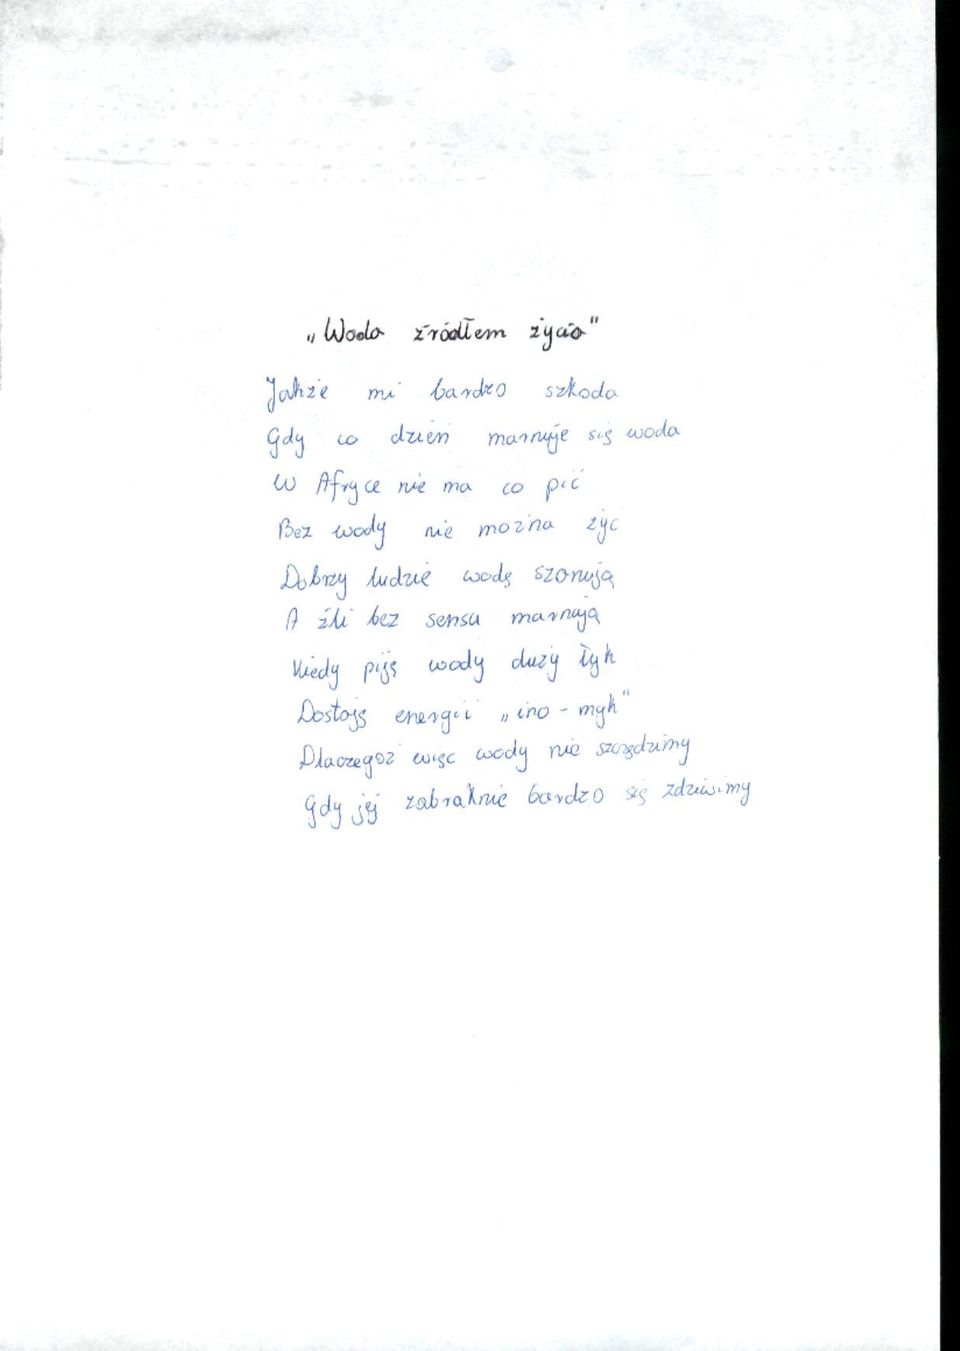 „Woda źródłem życia"
Jakże mi bardzo szkoda
Gdy co dzień marnuje się woda
W Afryce nie ma co pić
Bez wody nie można żyć
Dobrzy ludzie wodę szonują
A źli bez sensu marnują
Kiedy piję wody duży łyk
Dostaję energii „ino-myk"
Dlaczegoż więc wody nie szczędzimy
Gdy jej zabraknie bardzo się zdziwimy